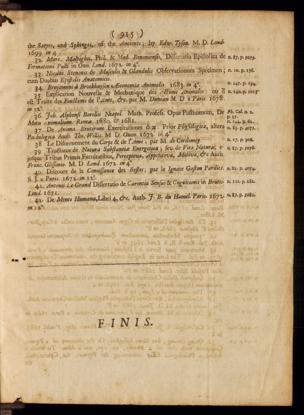 ( 925 )
the Satyrs, and Sphinges, of the Ancients; by Edw. Tyson M. D. Lond.
1699. in 4.
32. Marc. Malpighii, Phil. & Med. Bononiensis, Dissertatio Epistolica de n. 87. p. 5079.
Formatione Pulli in Ovo. Lond. 1672. in 4°.
33. Nicolai Stenonis de Musculis & Glandulis Observationum Specimen; n. 10. p. 176.
cum Duabus Epistolis Anatomicis.
34. Beughemii Œconomia Animalis 1685. in 4°.
35. Explication Nouvelle & Mechanique des Actions Animales; ou il
est Traite des Fonctions de l'Ame, &c. par M. Duncan M. D. a Paris 1678.
in 12°.
36. Joh. Alphonsi Borelli Neapol. Math. Profess. Opus Posthumum, De
Motu Animalium. Romæ. 1680. & 1681.
37. De Anima Brutorum Exercitationes duæ: Prior Physiologica, altera
Pathologica. Auth. Tho. Willis. M. D. Oxon. 1672. in 4°.
38. Le Discernement du Corps & de l'Ame; par M. de Cordemoy
39. Tractatus de Natura Substantiæ Energetica; seu de Vita Naturæ, e-
jusque Tribus Primis Facultatibus, Perceptiva, Appetitiva, Motiva, &c. Auth.
Franc. Glissonio. M. D. Lond. 1672. in 4°.
40. Discours de la Connoissance des Bestes; par le Ignace Gaston Pardies.
S. J. a Paris. 1672. in 12°.
41. Antonii Le Grand Dissertatio de Carentia Sensus & Cognitionis in Brutis.
Lond. 1675.
42. De Mente Humana, Libri 4. &c. Auth. J. B. du Hamel. Paris. 1672.
in 12°.
FINIS.